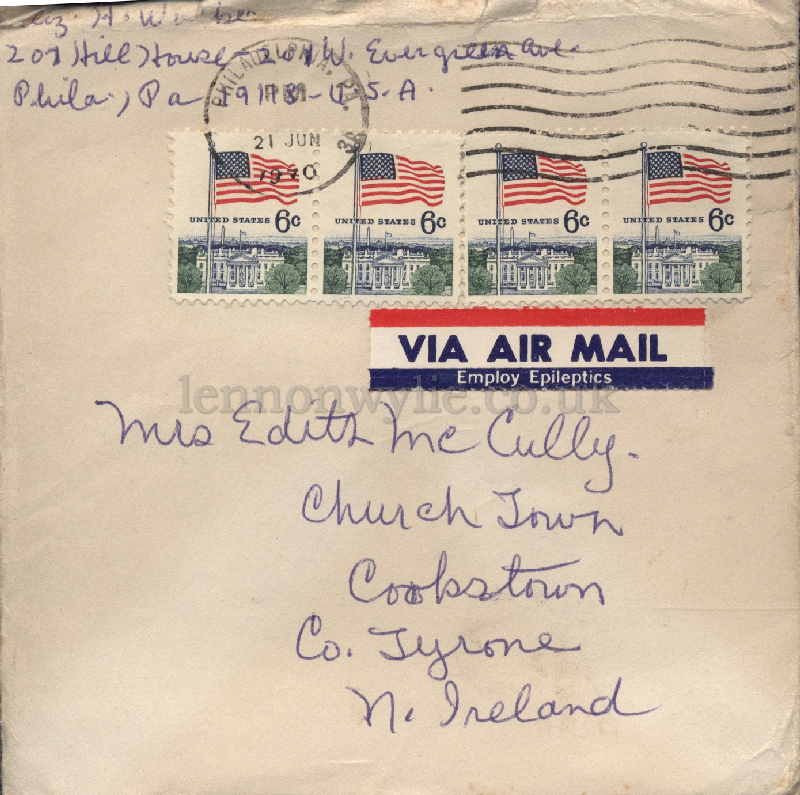 H.
207 Hill House - 201 W. Evergreen Ave.
Phila., Pa 19118 - U.S.A.
PHILADELPHIA, PA.
PM
21 JUN
1970
UNITED STATES 6c
UNITED STATES 6c
UNITED STATES 6c
UNITED STATES 6c
VIA AIR MAIL
Employ Epileptics
lennonwylie.co.uk
Mrs Edith McCully.
Church Town
Cookstown
Co. Tyrone
N. Ireland